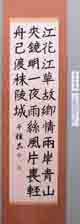 江花江草故鄉情兩岸青山
夾鏡明一夜雨絲風片裏輕
舟已渡秣陵城